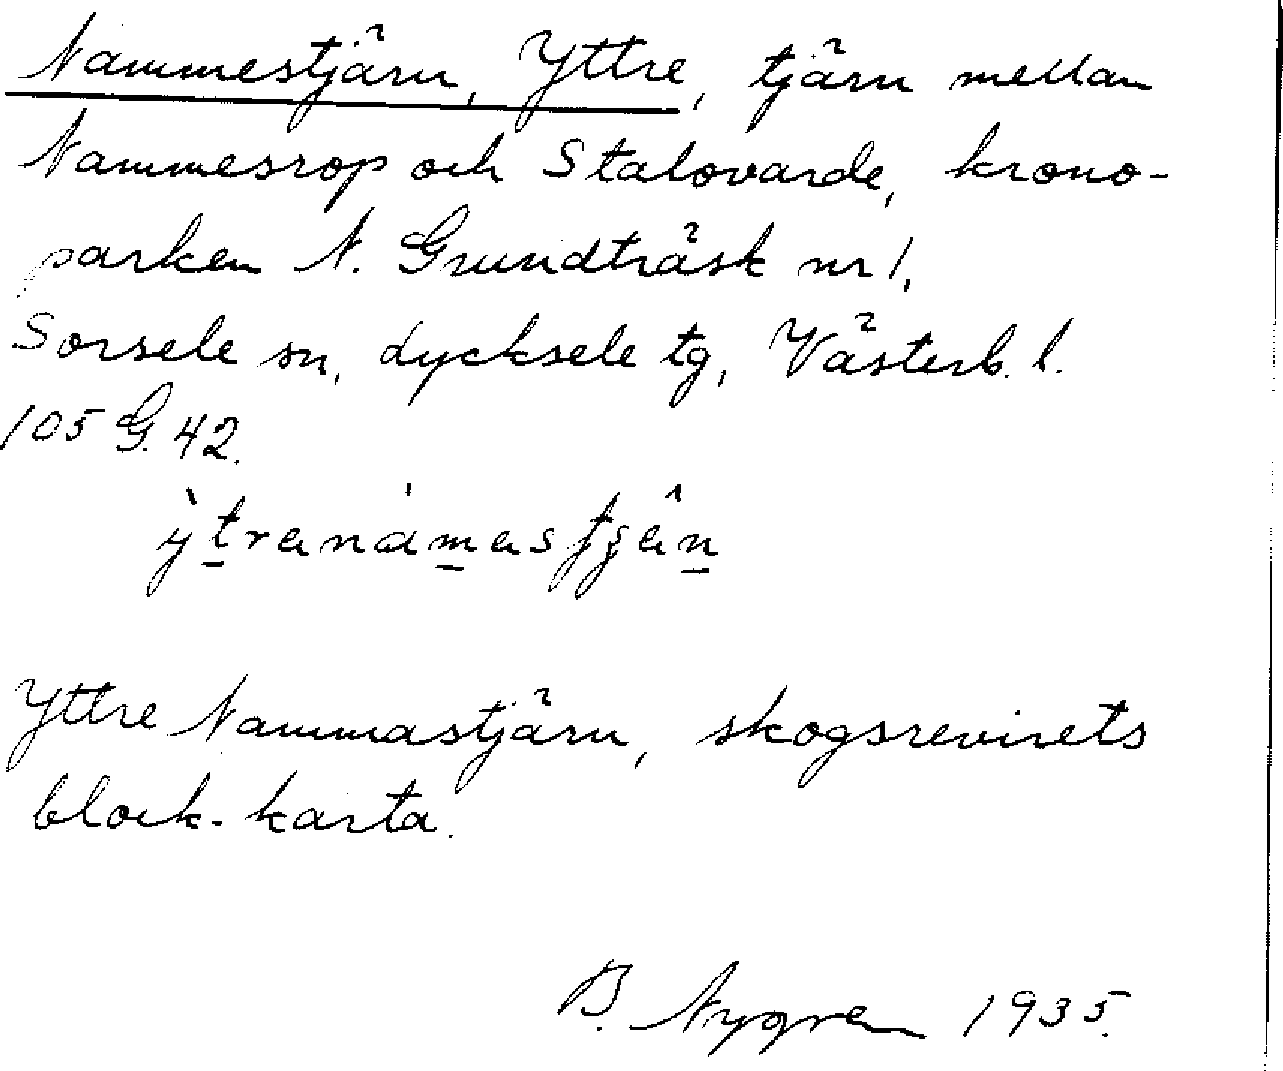 Nammestjärn, Yttre, tjärn mellan
Nammesrop och Stalovarde, krono-
parken N. Grundträsk nr 1,
Sorsele sn, Lycksele tg, Västerb. l.
105 G. 42.
ỳt̲renȧm̲estʒân̲
Yttre Nammastjärn, skogsrevirets
block-karta.
B. Nygren 1935.